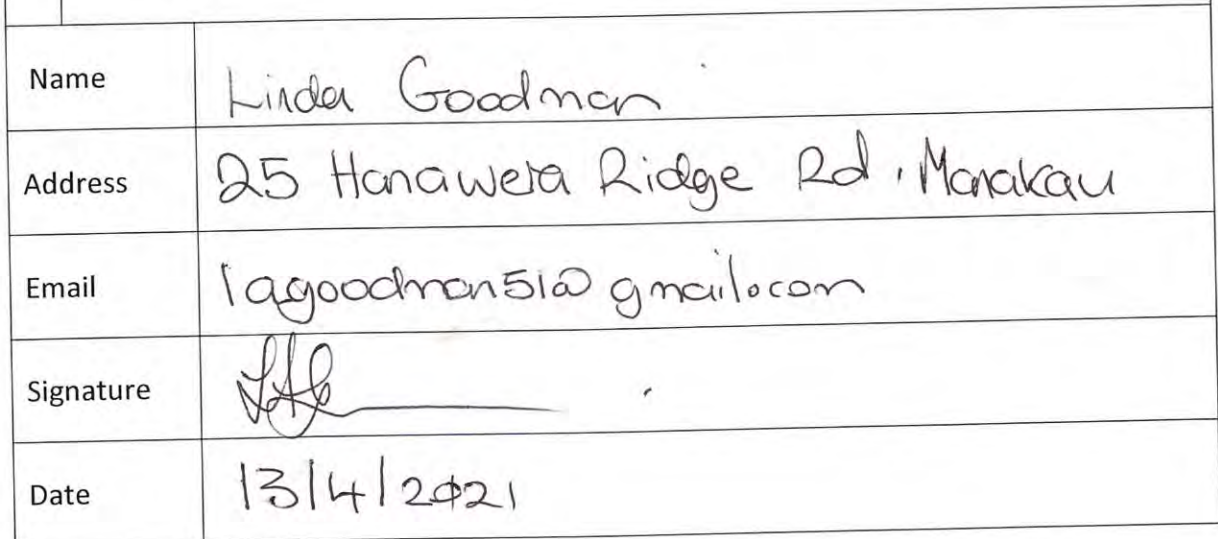 Name Linda Goodman
Address 25 Hanawera Ridge Rd, Manakau
Email lagoodman51@gmail.com
Signature
Date 13/4/2021